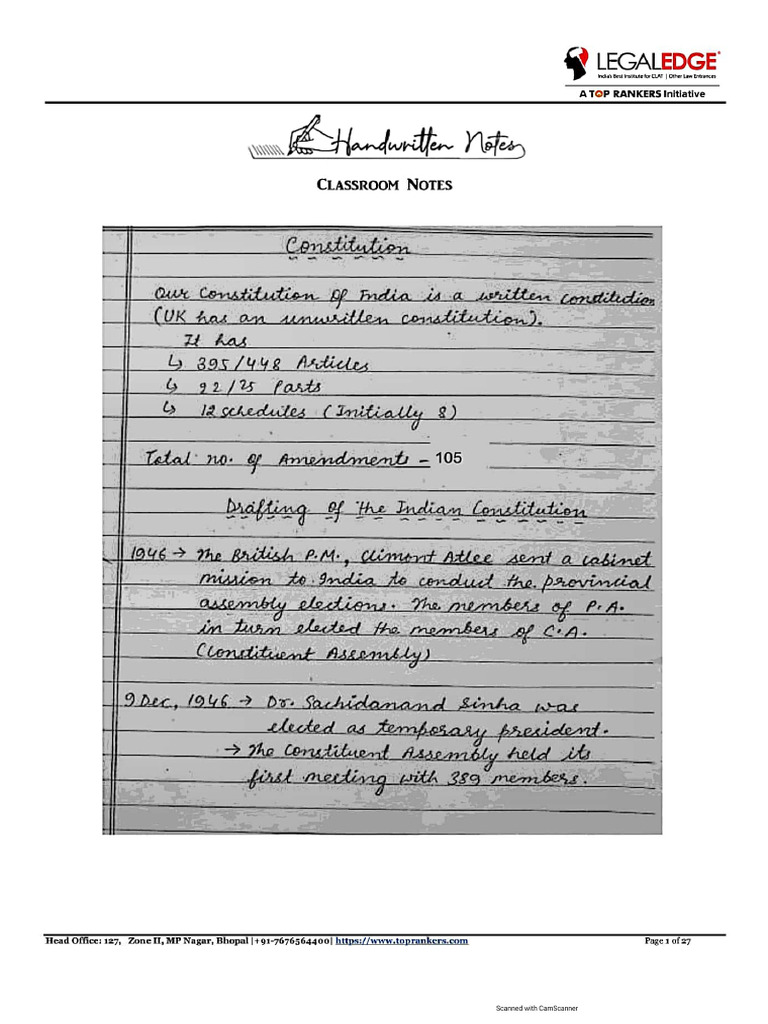 LEGALEDGE
India's Best Institute for CLAT | Other Law Entrances
A TOP RANKERS Initiative
Handwritten Notes
CLASSROOM NOTES
Constitution
Our Constitution Of India is a written constitution
(UK has an unwritten constitution).
It has
↳ 395/448 Articles
↳ 22/25 Parts
↳ 12 schedules (Initially 8)
Total no. of Amendments - 105
Drafting of the Indian Constitution
1946 → The British P.M., Climont Atlee sent a cabinet
mission to India to conduct the provincial
assembly elections. The members of P.A.
in turn elected the members of C.A.
(Constituent Assembly)
9 Dec, 1946 → Dr. Sachidanand Sinha was
elected as temporary president.
→ The Constituent Assembly held its
first meeting with 389 members.
Head Office: 127, Zone II, MP Nagar, Bhopal |+91-7676564400| https://www.toprankers.com Page 1 of 27
Scanned with CamScanner